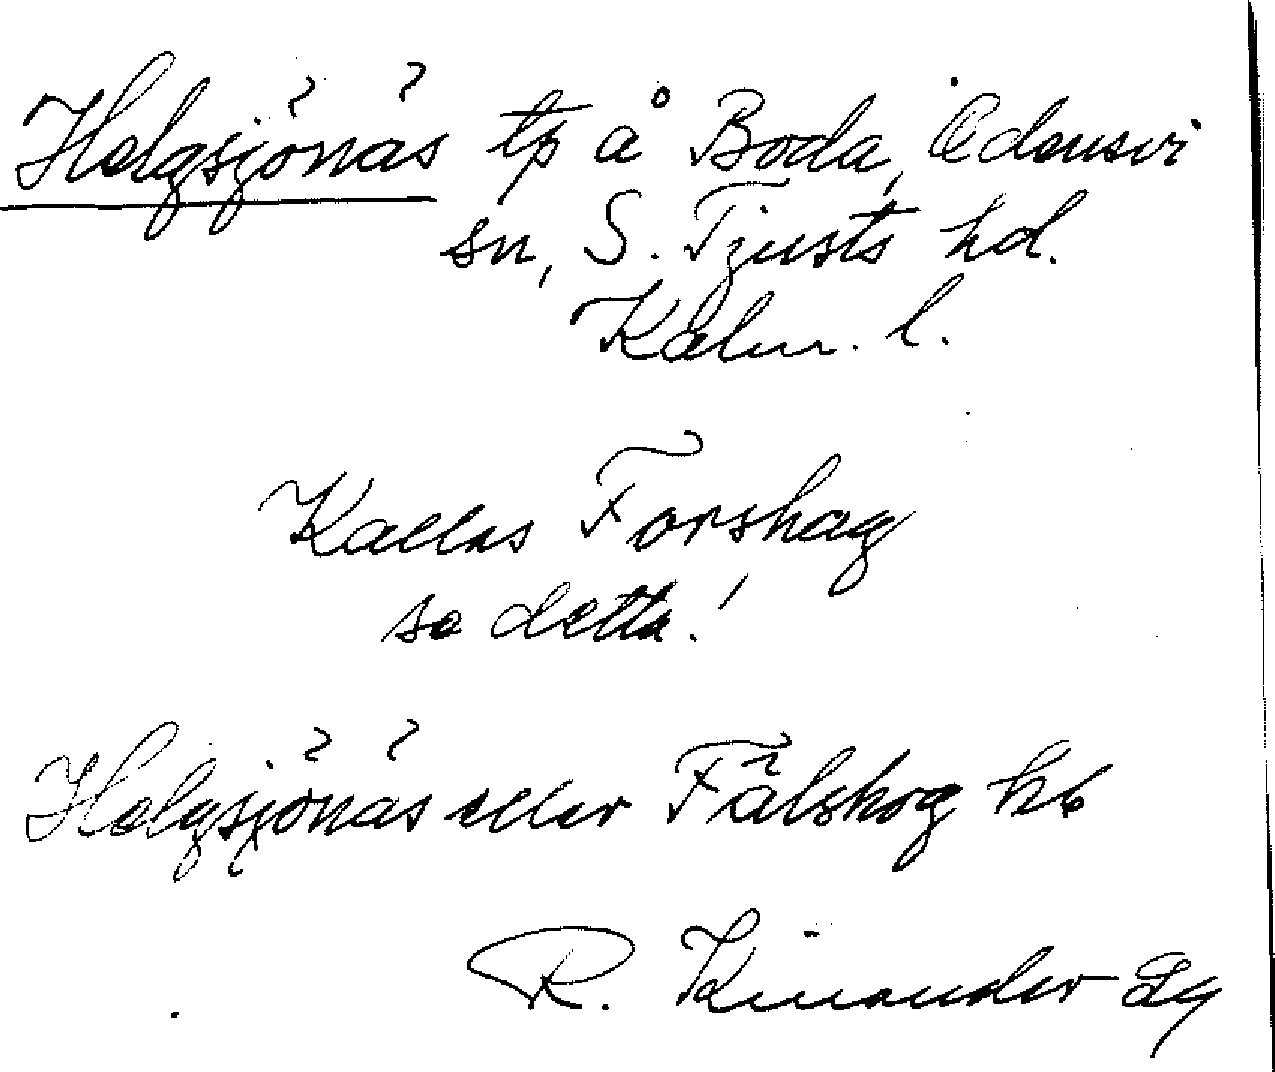 Helgsjönäs tp å Boda, Odensvi
sn, S. Tjusts hd.
Kalm. l.
Kallas Forshag
se detta!
Helgsjönäs eller Fälskog
R. Kinander